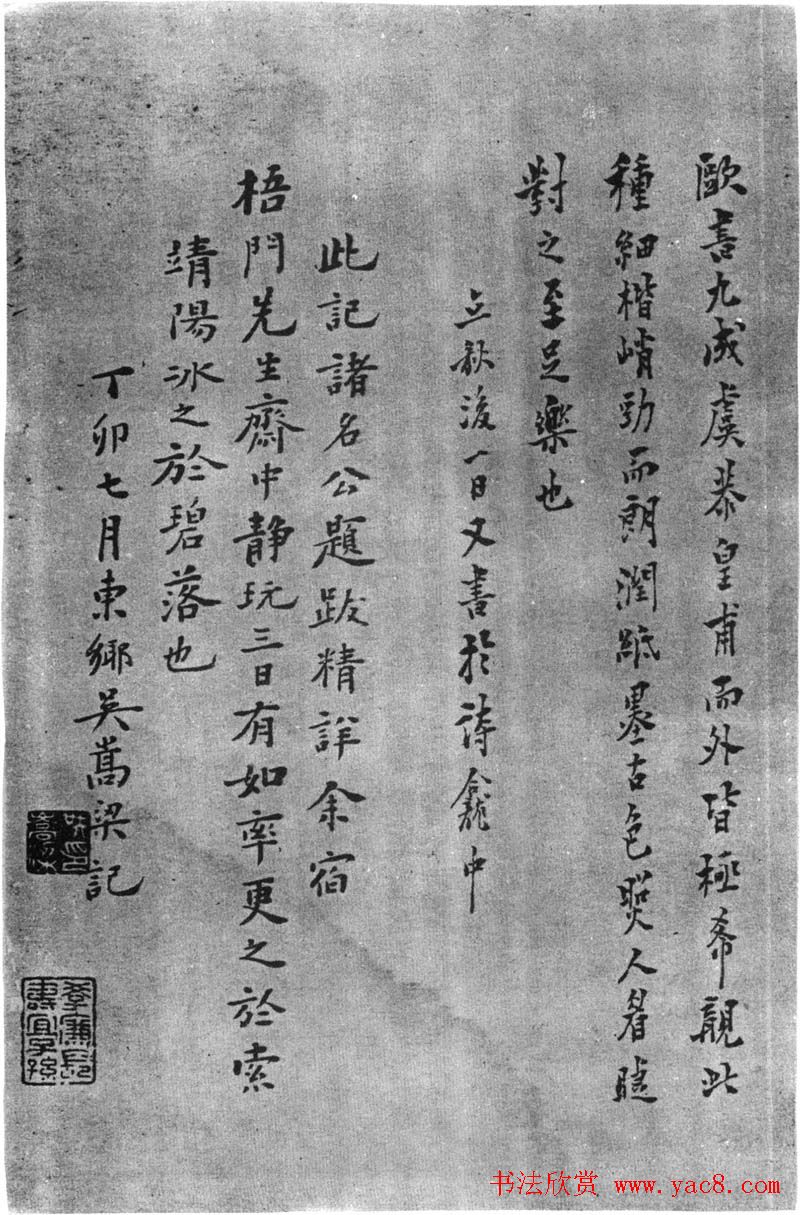 歐書九成虞恭皇甫而外皆極希覯此
種細楷峭勁而朗潤紙墨古色照人眉睫
對之至足樂也
立秋後一日又書於詩龕中
此記諸名公題跋精詳余宿
梧門先生齋中静玩三日有如率更之於索
靖陽冰之於碧落也
丁卯七月東鄉吳嵩梁記
書法欣賞 www.yac8.com